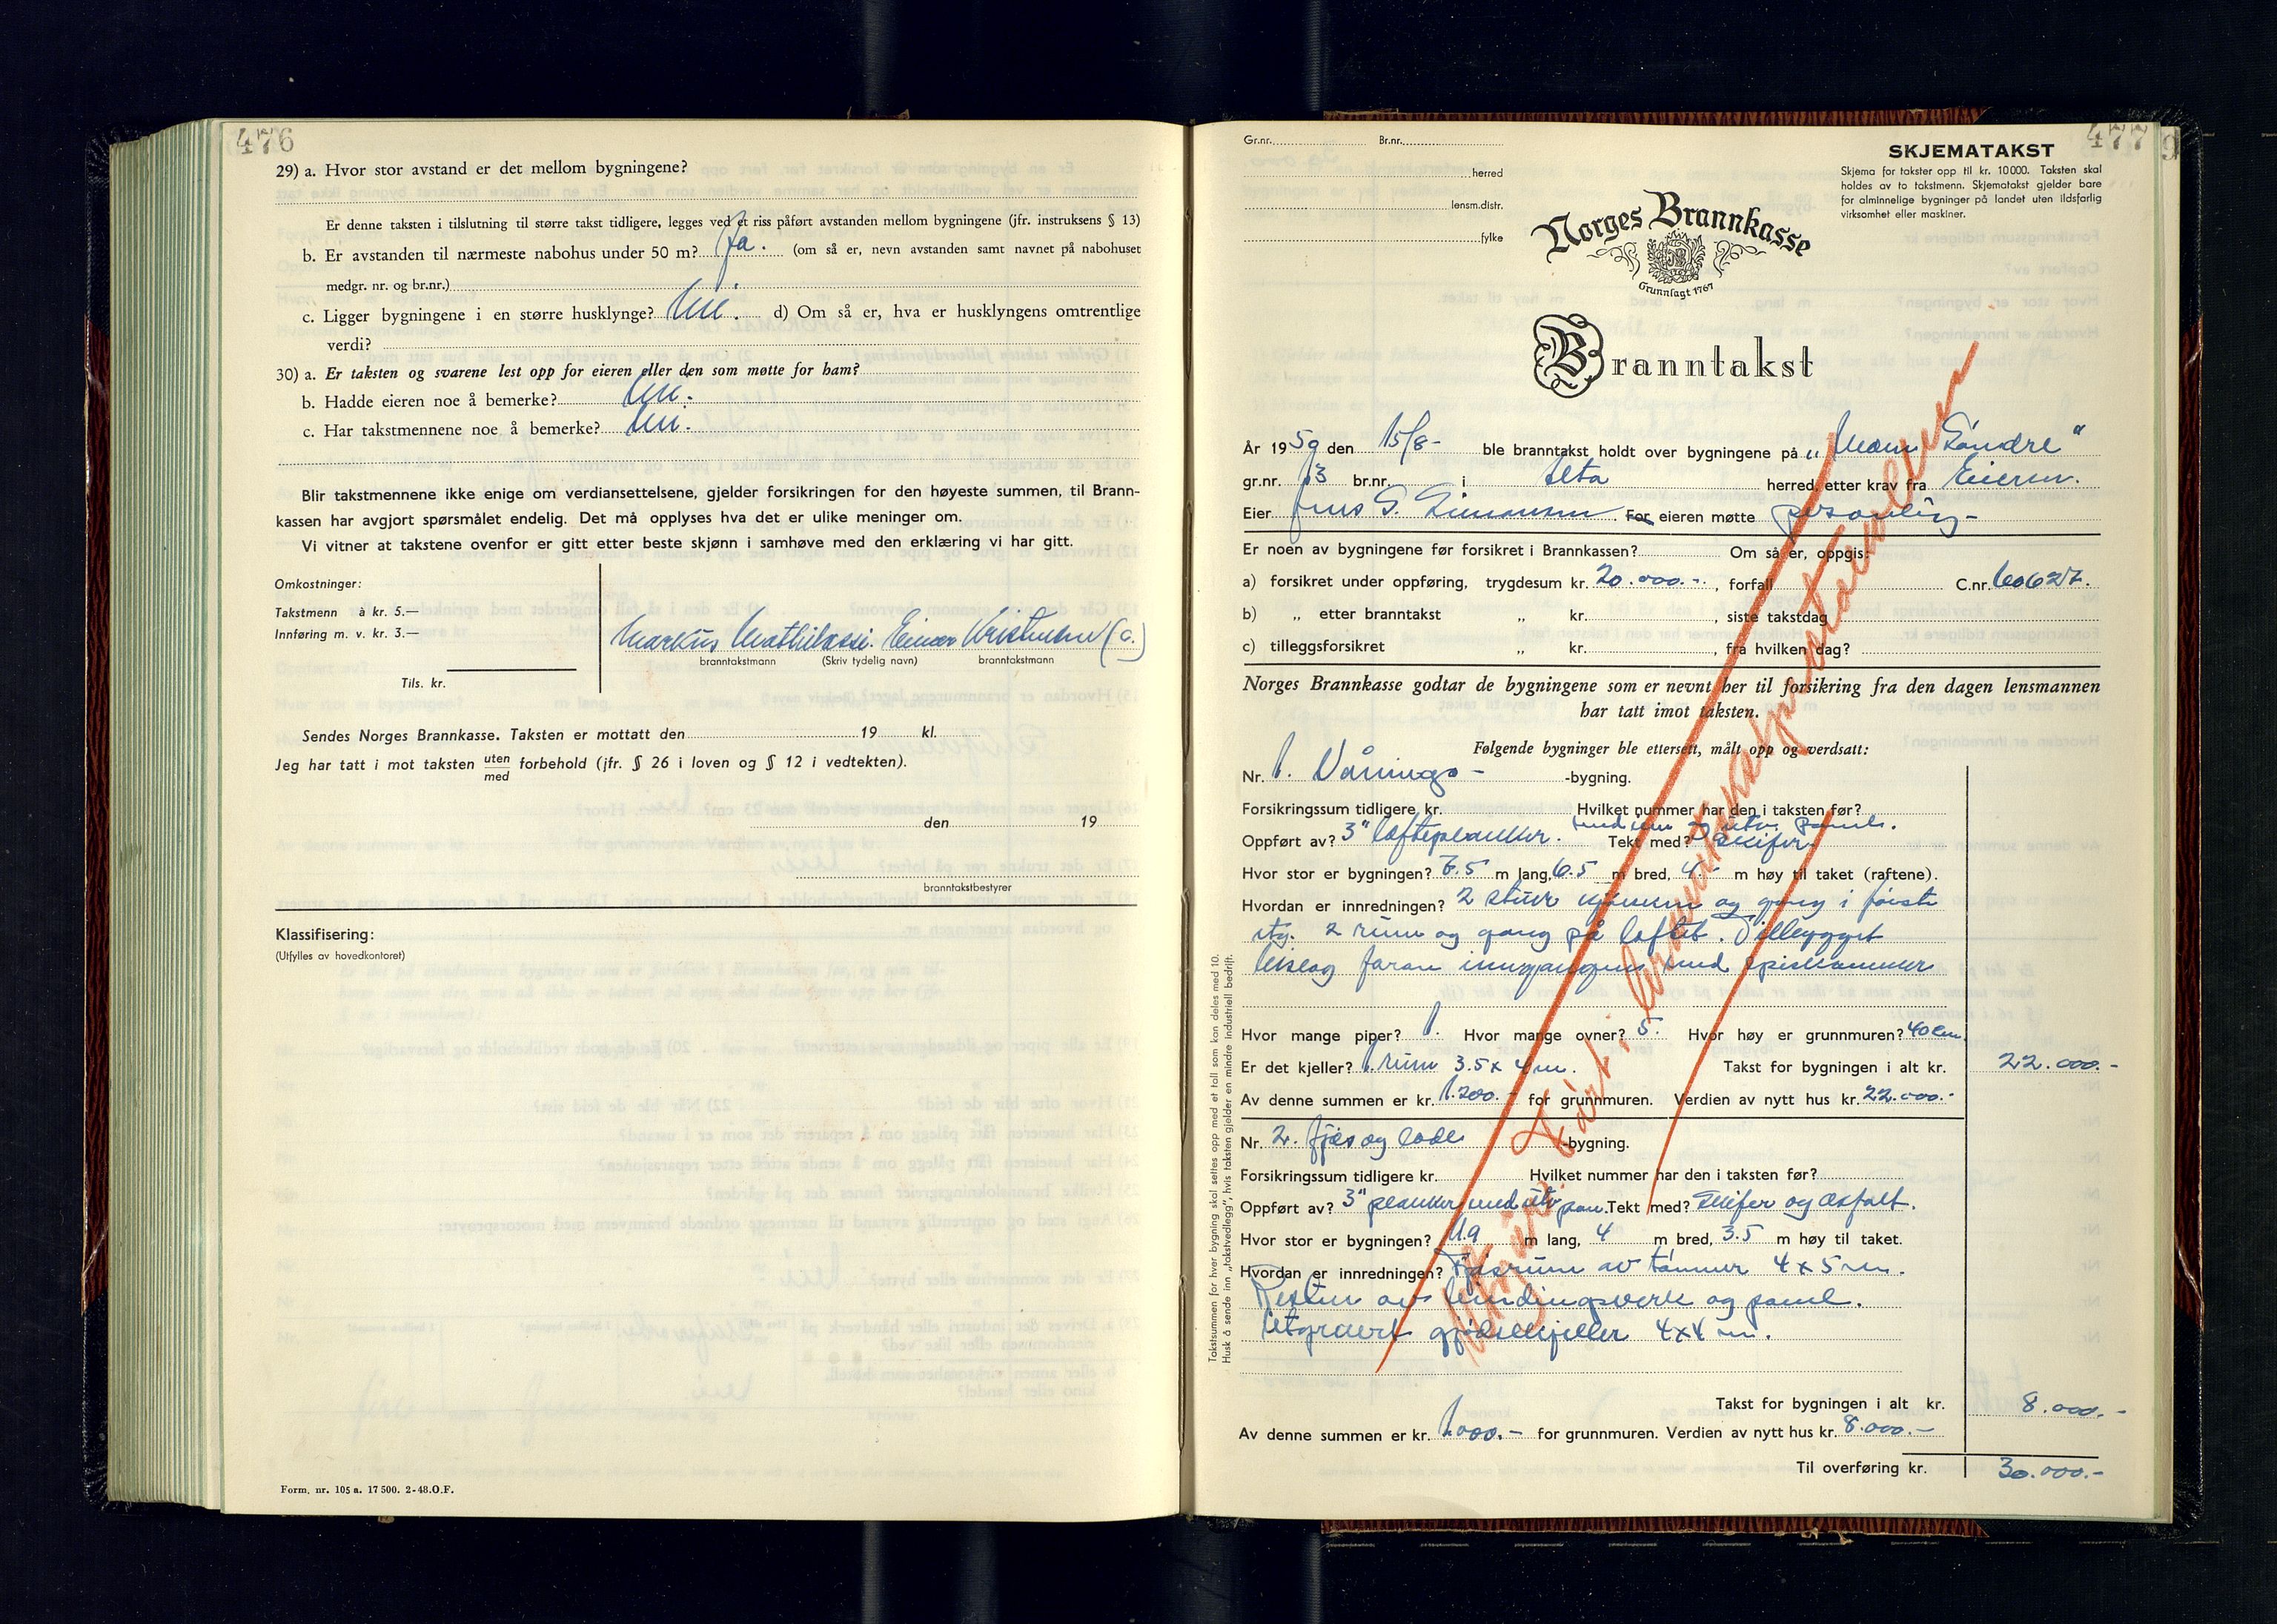 476
29) a. Hvor stor avstand er det mellom bygningene?
Er denne taksten i tilslutning til større takst tidligere, legges ved et riss påført avstanden mellom bygningene (jfr. instruksens § 13)
b. Er avstanden til nærmeste nabohus under 50 m? Ja. (om så er, nevn avstanden samt navnet på nabohuset
medgr. nr. og br.nr.)
c. Ligger bygningene i en større husklynge? Nei. d) Om så er, hva er husklyngens omtrentlige
verdi?
30) a. Er taksten og svarene lest opp for eieren eller den som møtte for ham?
b. Hadde eieren noe å bemerke? Nei.
c. Har takstmennene noe å bemerke? Nei.
Blir takstmennene ikke enige om verdiansettelsene, gjelder forsikringen for den høyeste summen, til Brann-
kassen har avgjort spørsmålet endelig. Det må opplyses hva det er ulike meninger om.
Vi vitner at takstene ovenfor er gitt etter beste skjønn i samhøve med den erklæring vi har gitt.
Omkostninger:
Takstmenn à kr. 5.—
Innføring m. v. kr. 3.—
Markus Mathilassi. Einar Kristensen (s.)
branntakstmann (Skriv tydelig navn) branntakstmann
Tils. kr.
Sendes Norges Brannkasse. Taksten er mottatt den 19 kl.
Jeg har tatt i mot taksten uten
med forbehold (jfr. § 26 i loven og § 12 i vedtekten).
den 19
branntakstbestyrer
Klassifisering:
(Utfylles av hovedkontoret)
Form. nr. 105 a. 17 500. 2-48. O.F.
477
9
Gr.nr. Br.nr.
herred
lensm.distr.
fylke
SKJEMATAKST
Skjema for takster opp til kr. 10000. Taksten skal
holdes av to takstmenn. Skjematakst gjelder bare
for alminnelige bygninger på landet uten ildsfarlig
virksomhet eller maskiner.
Norges Brannkasse
Grunnlagt 1767
Branntakst
År 1959 den 15/8- ble branntakst holdt over bygningene på „ Søndre"
gr.nr. 13 br.nr. i Alta herred, etter krav fra Eieren.
Eier Jens S. Simonsen. For eieren møtte personlig-
Er noen av bygningene før forsikret i Brannkassen? Om så er, oppgis:
a) forsikret under oppføring, trygdesum kr. 20.000.-, forfall C.nr.
b) „ etter branntakst „ kr. , siste takstdag
c) tilleggsforsikret „ kr. , fra hvilken dag?
Norges Brannkasse godtar de bygningene som er nevnt her til forsikring fra den dagen lensmannen
har tatt imot taksten.
Følgende bygninger ble ettersett, målt opp og verdsatt:
Nr. 1. Vånings- -bygning.
Forsikringssum tidligere kr. Hvilket nummer har den i taksten før?
Oppført av? 3" lafteplanker. med utv. panel. Tekt med? Skifer
Hvor stor er bygningen? 7.5 m lang, 6.5 m bred, 4.- m høy til taket (raftene).
Hvordan er innredningen? 2 stuer kjøkken og gang i første
etg. 2 rum og gang på loftet. Tilbygget
bislag foran inngangen med spiskammer
Hvor mange piper? 1. Hvor mange ovner? 5. Hvor høy er grunnmuren? 40cm.
Er det kjeller? 1 rum 3.5 x 4m. Takst for bygningen i alt kr. 22.000.-
Av denne summen er kr. 1.200.- for grunnmuren. Verdien av nytt hus kr. 22.000.-
Nr. 2. fjøs og lade -bygning.
Forsikringssum tidligere kr. Hvilket nummer har den i taksten før?
Oppført av? 3" planker med utv. pan. Tekt med? Skifer og asfalt.
Hvor stor er bygningen? 11.9 m lang, 4 m bred, 3.5 m høy til taket.
Hvordan er innredningen? Fjøsrum av tømmer 4 x 5 m.
Resten av bindingsverk og panel.
Utgravet gjødselkjeller 4x4 m.
Takst for bygningen i alt kr. 8.000.-
Av denne summen er kr. 1.000.- for grunnmuren. Verdien av nytt hus kr. 8.000.-
Til overføring kr. 30.000.-
Takstsummen for hver bygning skal settes opp med et tall som kan deles med 10.
Husk å sende inn „takstvedlegg", hvis taksten gjelder en mindre industriell bedrift.
Utgår. Ført i branntakstprotokollen